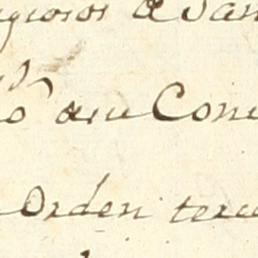 giosos de San
a su Con
Orden terce